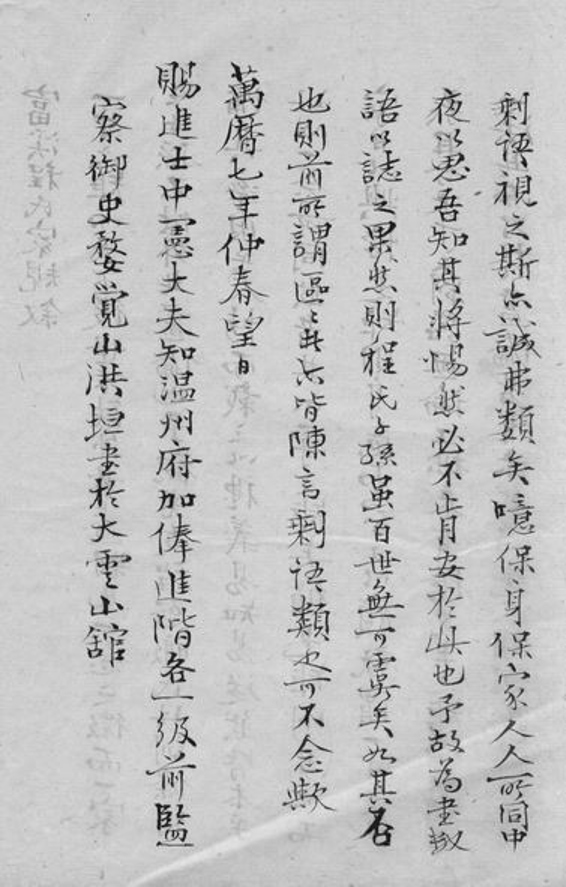 剩語視之斯亦誠弗類矣噫保身保家人人所同中
夜以思吾知其將惕然必不肯安於此也予故為書數
語以誌之果然則程氏子孫虽百世無可虞矣如其否
也則前所謂區區此亦皆陳言剩語類也可不念歟
萬曆七年仲春望日
賜進士中憲大夫知温州府加俸進階各一級前監
察御史婺覺山洪垣書於大雲山舘